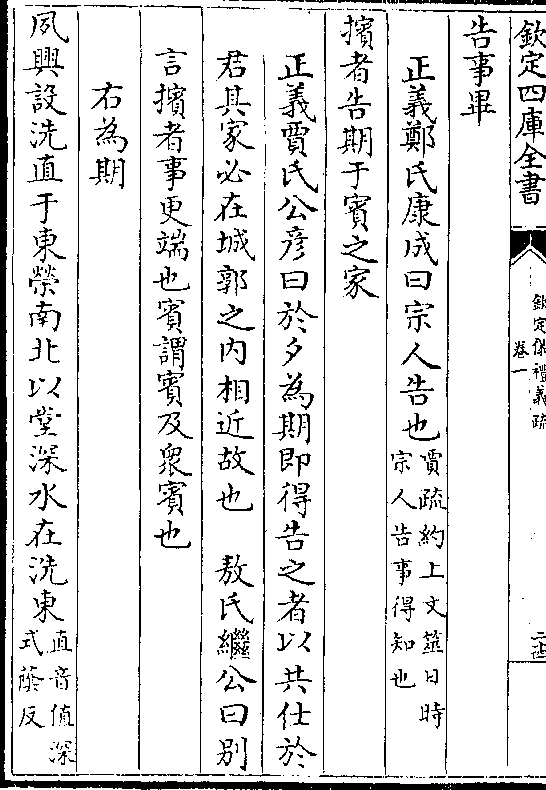 欽定四庫全書
欽定儀禮義疏
卷一
告事畢
正義鄭氏康成曰宗人告也賈疏約上文筮日時
宗人告事得知也
擯者告期于賓之家
正義賈氏公彦曰於夕為期即得告之者以共仕於
君其家必在城郭之内相近故也　敖氏繼公曰別
言擯者事更端也賓謂賓及衆賓也
右為期
夙興設洗直于東榮南北以堂深水在洗東直音值深
式蔭反